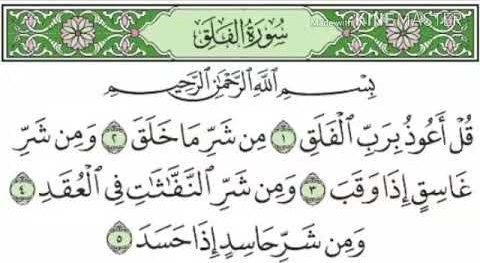 Made with KINEMASTER
سُورَةُ الفَلَقِ
بِسْمِ اللَّهِ الرَّحْمَٰنِ الرَّحِيمِ
قُلْ أَعُوذُ بِرَبِّ الْفَلَقِ ١ مِن شَرِّ مَا خَلَقَ ٢ وَمِن شَرِّ
غَاسِقٍ إِذَا وَقَبَ ٣ وَمِن شَرِّ النَّفَّٰثَٰتِ فِي الْعُقَدِ ٤
وَمِن شَرِّ حَاسِدٍ إِذَا حَسَدَ ٥